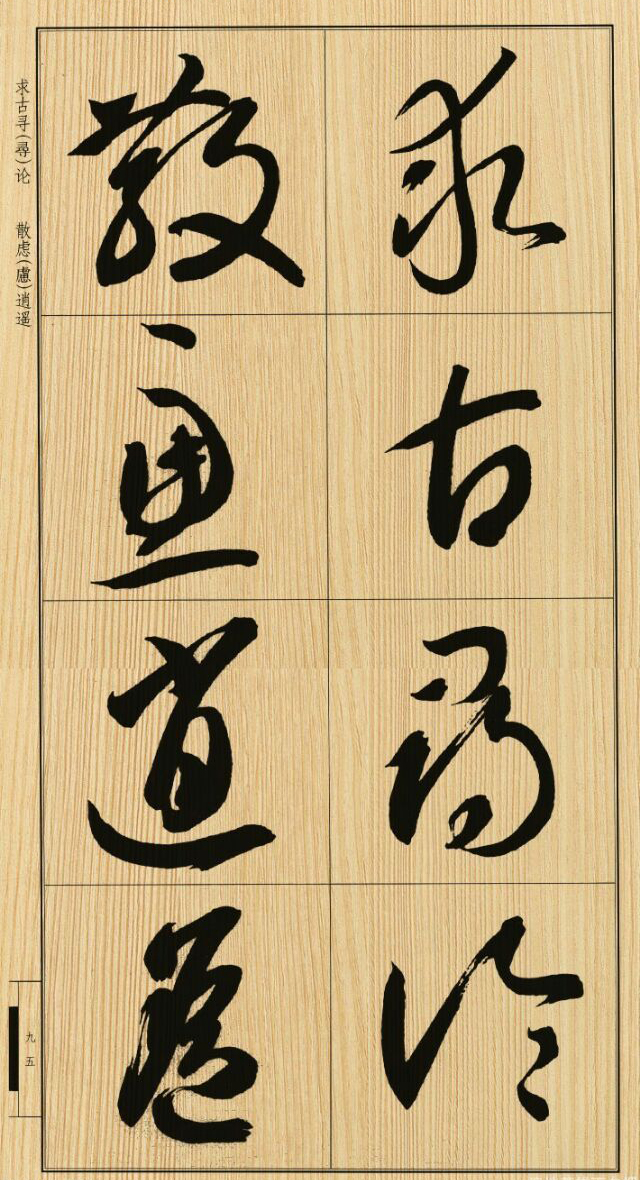 求古尋论
散慮逍遥
求古寻(尋)论 散虑(慮)逍遥
九五